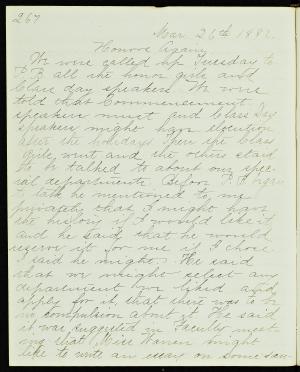 267
Mar. 26th 1892.
Honors Again
We were called up Tuesday to
P.B. all the honor girls and
Class day speakers. We were
told that Commencement
speakers must and Class Day
speakers might have elocution
after the holidays. Then the Class
girls went and the others staid
to be talked to about our spec-
ial departments. Before
talk he mentioned to me
privately that I might have
the history if I would like it
and he said that he would
reserve it for me if I chose.
I said he might. He said
that we might select any
department we liked and
apply for it, that there was to be
no compulsion about it. He said
it was suggested in Faculty meet
ing that Miss might
like to write an essay on some